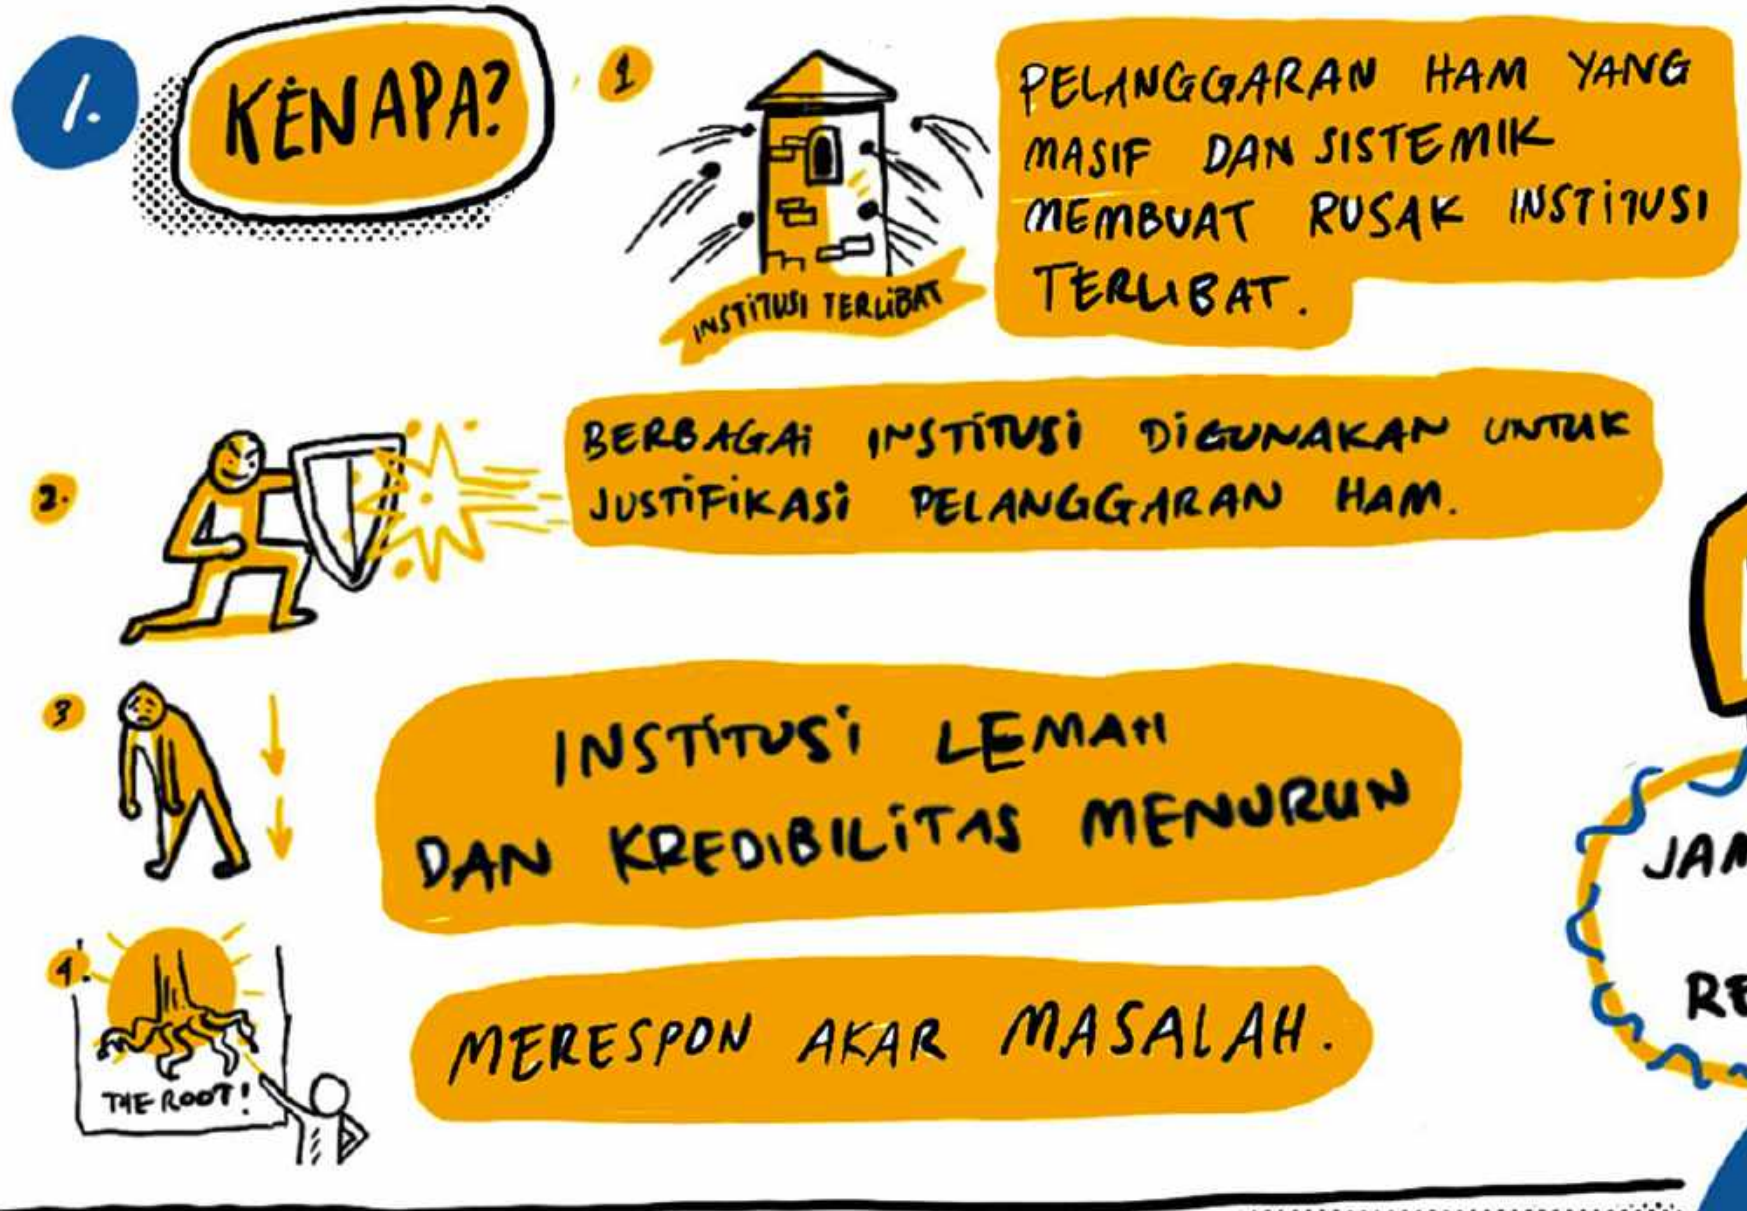 1.
KENAPA?
1
INSTITUSI TERLIBAT
PELANGGARAN HAM YANG
MASIF DAN SISTEMIK
MEMBUAT RUSAK INSTITUSI
TERLIBAT.
2.
BERBAGAI INSTITUSI DIGUNAKAN UNTUK
JUSTIFIKASI PELANGGARAN HAM.
3
INSTITUSI LEMAH
DAN KREDIBILITAS MENURUN
4.
THE ROOT!
MERESPON AKAR MASALAH.